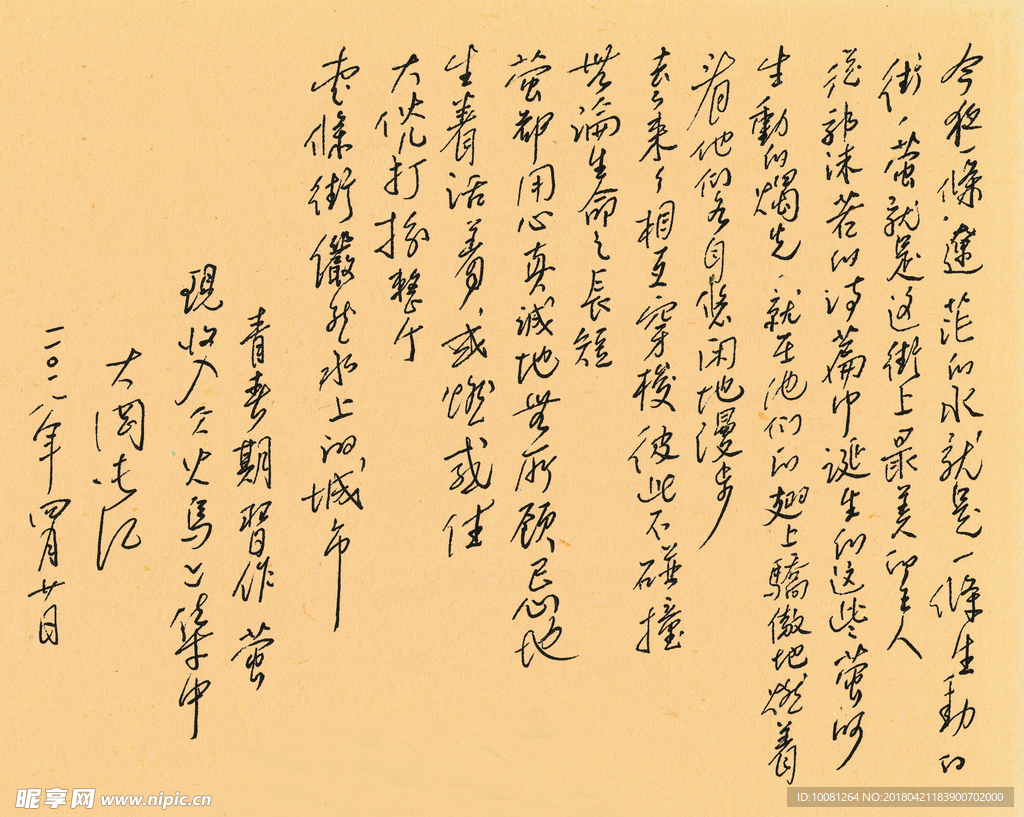 今夜一條蓮花的水就是一條生動的
街，螢就是這街上最美的主人
從郭沫若的詩篇中誕生的這些螢呵
生動的燭光，就在他們的翅上驕傲地燃着
看他们各自悠闲地漫步
去去来来相互穿梭彼此不碰撞
無論生命之長短
螢都用心真誠地無所顧忌地
生着活着，或燃或佳
大伙儿打扮整个
整條街儼然水上的城市
青春期習作 螢
現收入火鳥集中
大岡
二〇一八年四月廿日
昵享网 www.nipic.cn
ID:10081264 NO:20180421183900702000